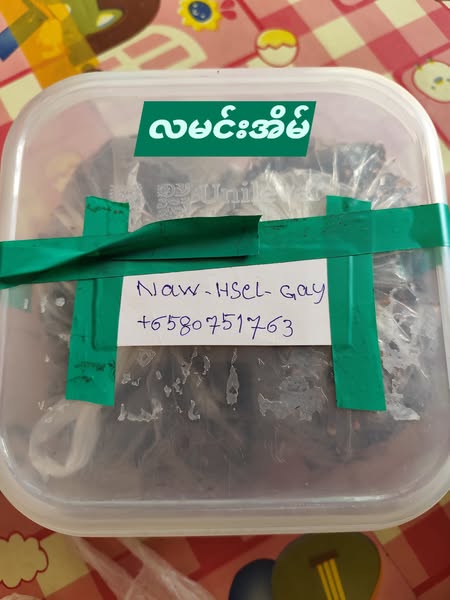 လမင်းအိမ်
Unilever
Naw-Hsel-Gay
+6580751763